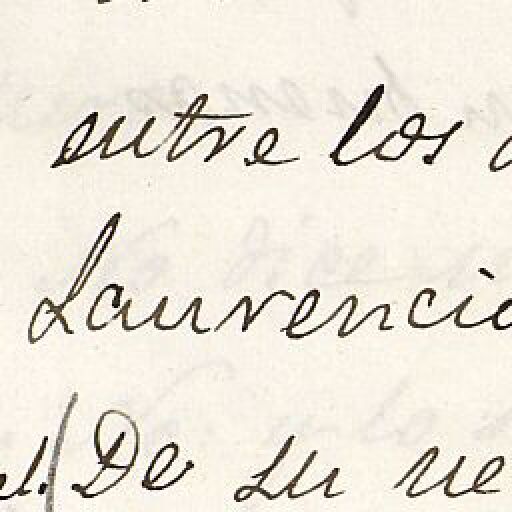 entre los
Laurencio
el. De su ve